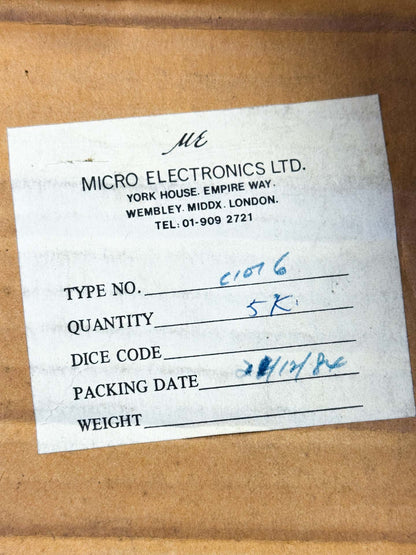 ME
MICRO ELECTRONICS LTD.
YORK HOUSE. EMPIRE WAY.
WEMBLEY. MIDDX. LONDON.
TEL: 01-909 2721
TYPE NO.
QUANTITY 5K
DICE CODE
PACKING DATE
WEIGHT